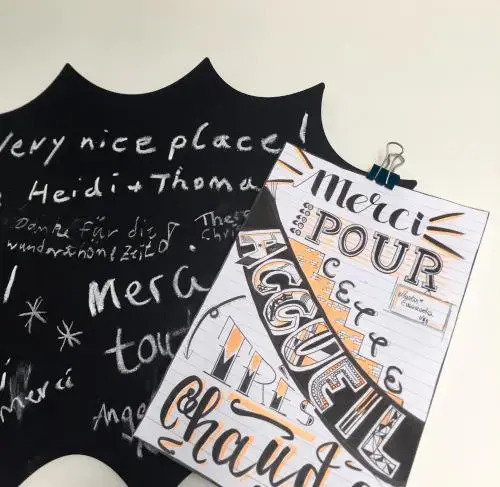 very nice place!
Heidi + Thoma
Danke für die
wunderschöne Zeit!
Merc
tout
Merci
Ang
Merci
POUR
CETTE
ACCUEIL
TRES
Chaud